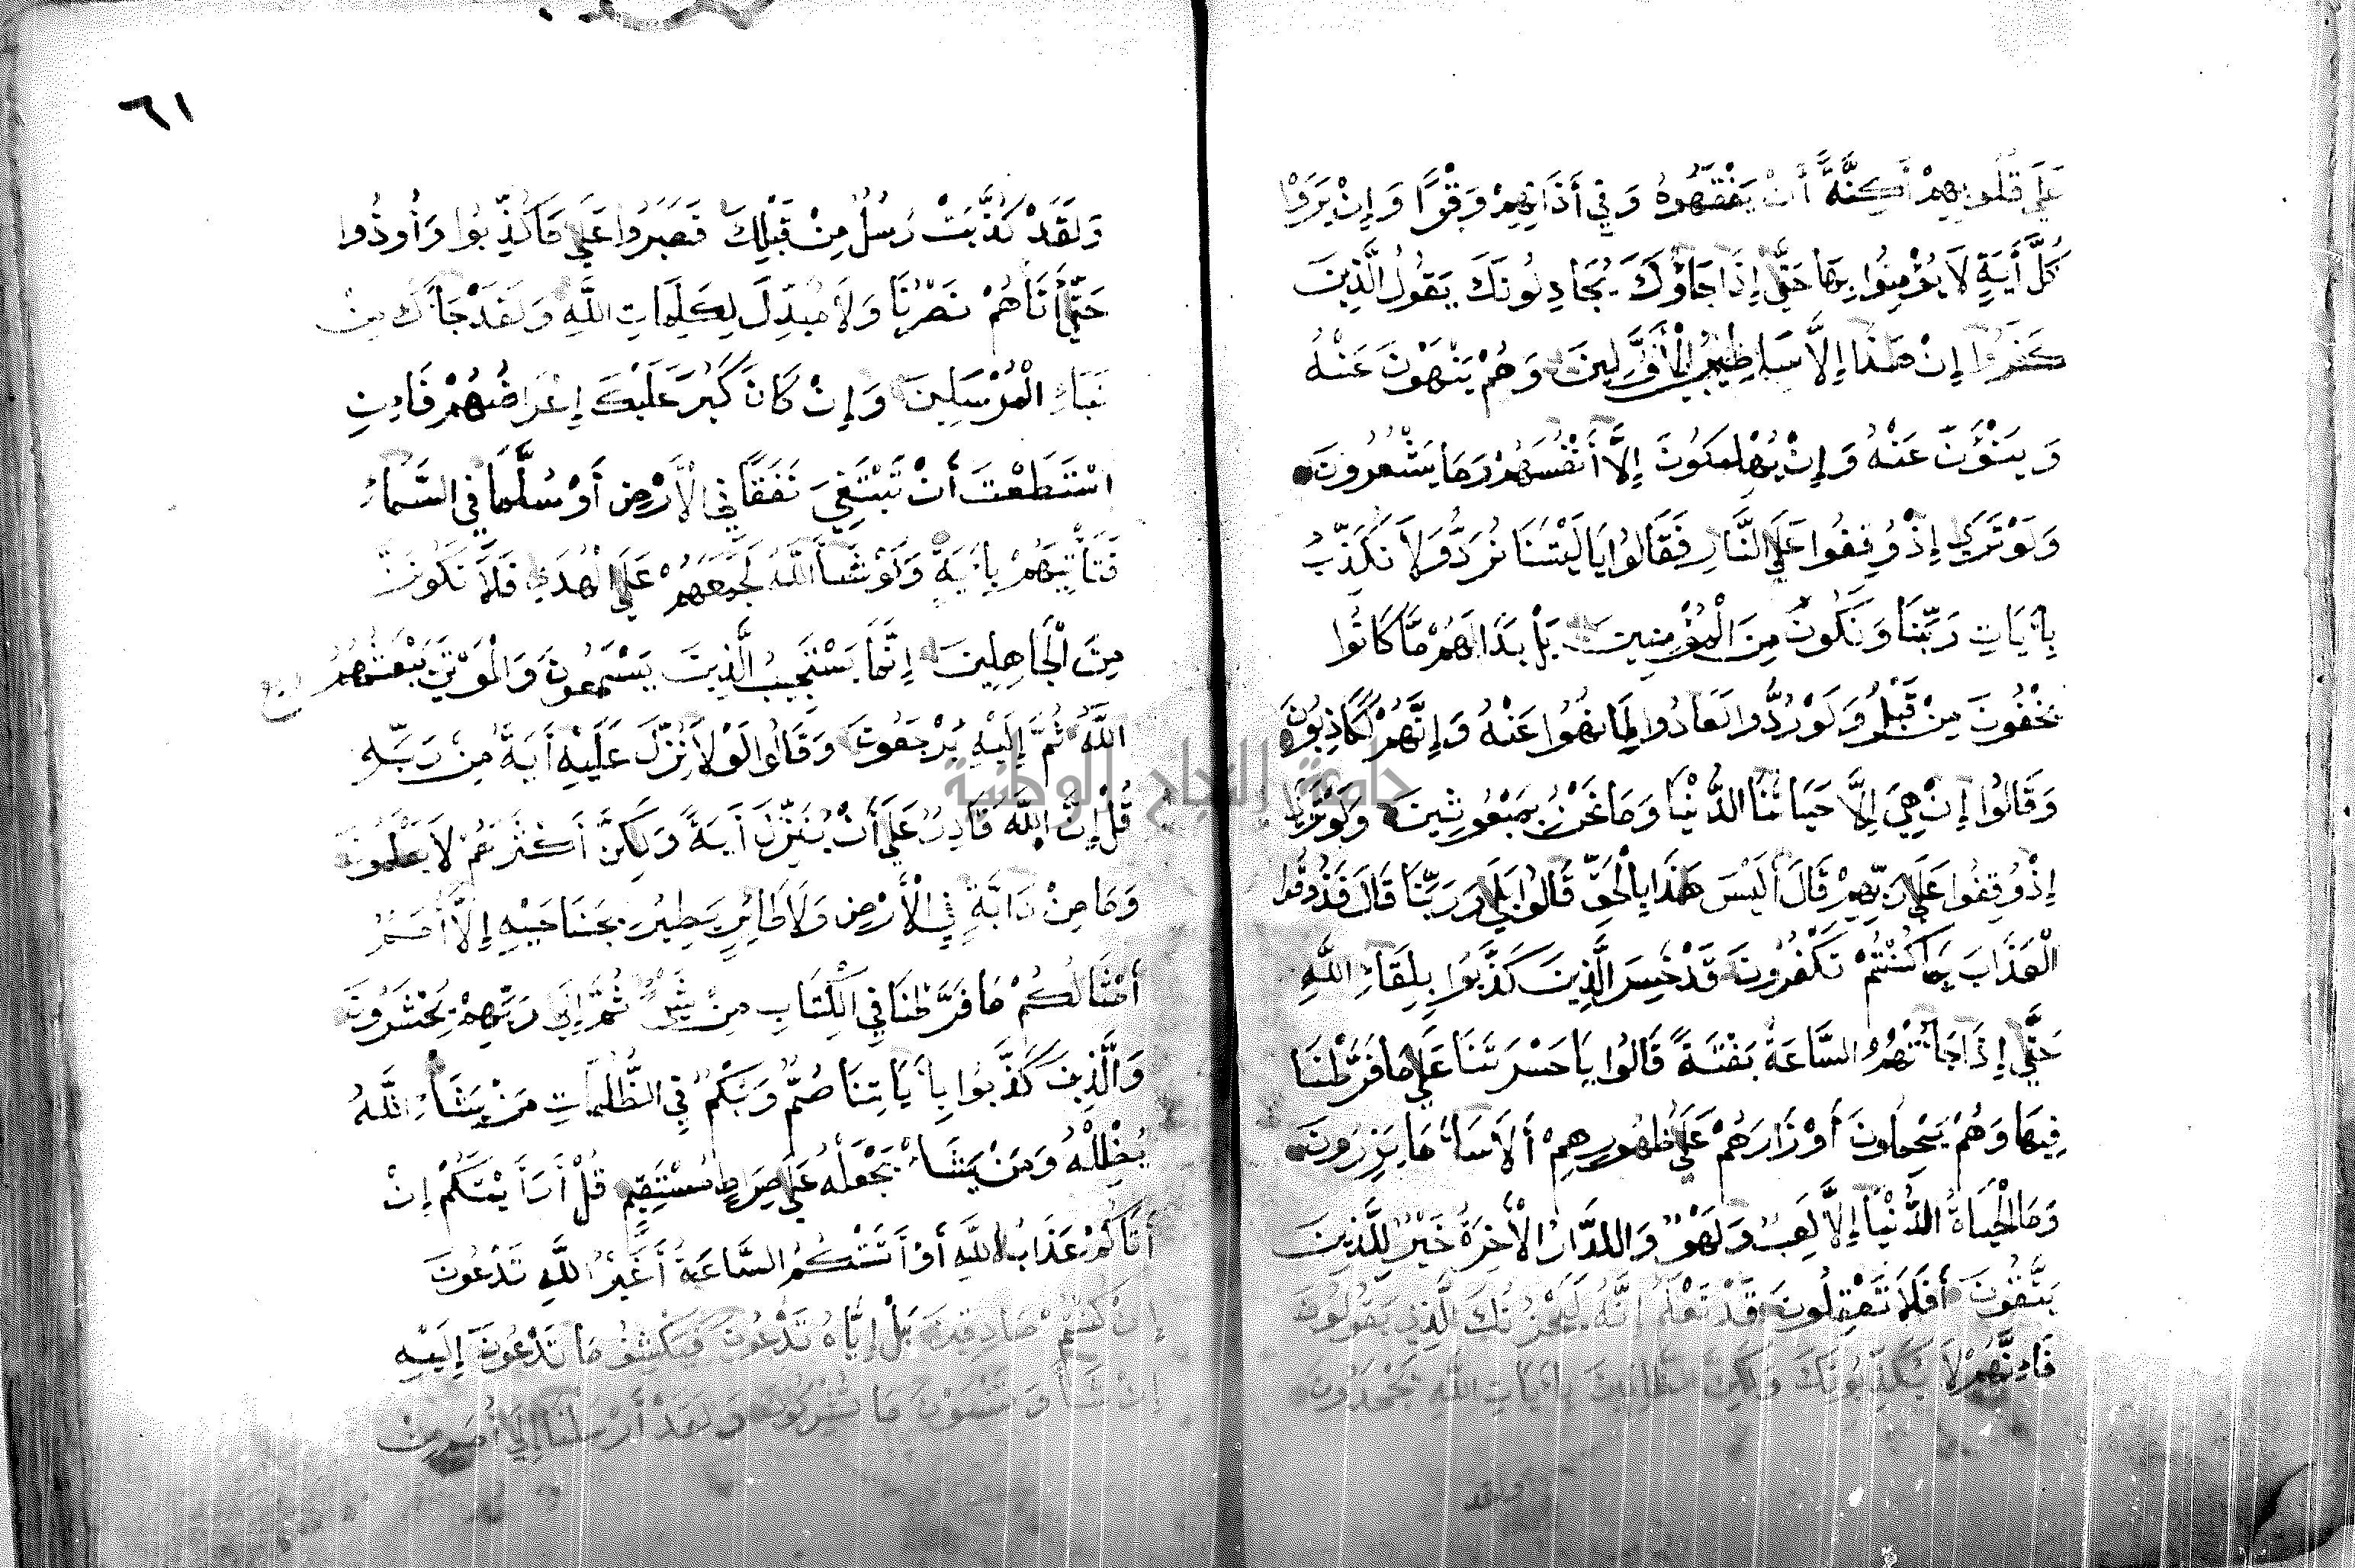 عَلَى قُلُوبِهِمْ أَكِنَّةً أَنْ يَفْقَهُوهُ وَفِي أَذَانِهِمْ وَقْرًا وَإِنْ يَرَوْا
كُلَّ أَيَةٍ لَا يُؤْمِنُوا بِهَا حَتَّى إِذَا جَاؤُكَ يُجَادِلُونَكَ يَقُولُ الَّذِينَ
كَفَرُوا إِنْ هَذَا إِلَّا أَسَاطِيرُ الْأَوَّلِينَ وَهُمْ يَنْهَوْنَ عَنْهُ
وَيَنْؤَنَ عَنْهُ وَإِنْ يُهْلِكُونَ إِلَّا أَنْفُسَهُمْ وَمَا يَشْعُرُونَ
وَلَوْ تَرَى إِذْ وُقِفُوا عَلَى النَّارِ فَقَالُوا يَا لَيْتَنَا نُرَدُّ وَلَا نُكَذِّبُ
بِأَيَاتِ رَبِّنَا وَنَكُونُ مِنَ الْمُؤْمِنِينَ بَلْ بَدَا لَهُمْ مَّا كَانُوا
يُخْفُونَ مِنْ قَبْلُ وَلَوْ رُدُّوا لَعَادُوا لِمَا نُهُوا عَنْهُ وَإِنَّهُمْ لَكَاذِبُونَ
وَقَالُوا إِنْ هِيَ إِلَّا حَيَاتُنَا الدُّنْيَا وَمَا نَحْنُ بِمَبْعُوثِينَ وَلَوْ تَرَى
إِذْ وُقِفُوا عَلَى رَبِّهِمْ قَالَ أَلَيْسَ هَذَا بِالْحَقِّ قَالُوا بَلَى وَرَبِّنَا قَالَ فَذُوقُوا
الْعَذَابَ بِمَا كُنْتُمْ تَكْفُرُونَ قَدْ خَسِرَ الَّذِينَ كَذَّبُوا بِلِقَاءِ اللَّهِ
حَتَّى إِذَا جَاءَتْهُمُ السَّاعَةُ بَغْتَةً قَالُوا يَا حَسْرَتَنَا عَلَى مَا فَرَّطْنَا
فِيهَا وَهُمْ يَحْمِلُونَ أَوْزَارَهُمْ عَلَى ظُهُورِهِمْ أَلَا سَاءَ مَا يَزِرُونَ
وَمَا الْحَيَاةُ الدُّنْيَا إِلَّا لَعِبٌ وَلَهْوٌ وَاللدَّارُ الْأَخِرَةُ خَيْرٌ لِلَّذِينَ
يَتَّقُونَ أَفَلَا تَعْقِلُونَ قَدْ نَعْلَمُ إِنَّهُ لَيُحْزِنُكَ الَّذِي يَقُولُونَ
فَإِنَّهُمْ لَا يُكَذِّبُونَكَ وَلَكِنَّ الظَّالِمِينَ بِأَيَاتِ اللَّهِ يَجْحَدُونَ
ولقد
٦١
وَلَقَدْ كُذِّبَتْ رُسُلٌ مِنْ قَبْلِكَ فَصَبَرُوا عَلَى مَا كُذِّبُوا وَأُوذُوا
حَتَّى أَتَاهُمْ نَصْرُنَا وَلَا مُبَدِّلَ لِكَلِمَاتِ اللَّهِ وَلَقَدْ جَاءَكَ مِنْ
نَبَاءِ الْمُرْسَلِينَ وَإِنْ كَانَ كَبُرَ عَلَيْكَ إِعْرَاضُهُمْ فَإِنِ
اسْتَطَعْتَ أَنْ تَبْتَغِيَ نَفَقًا فِي الْأَرْضِ أَوْ سُلَّمًا فِي السَّمَاءِ
فَتَأْتِيَهُمْ بِأَيَةٍ وَلَوْ شَاءَ اللَّهُ لَجَمَعَهُمْ عَلَى الْهُدَى فَلَا تَكُونَنَّ
مِنَ الْجَاهِلِينَ إِنَّمَا يَسْتَجِيبُ الَّذِينَ يَسْمَعُونَ وَالْمَوْتَى يَبْعَثُهُمُ ربع
اللَّهُ ثُمَّ إِلَيْهِ يُرْجَعُونَ وَقَالُوا لَوْلَا نُزِّلَ عَلَيْهِ أَيَةٌ مِنْ رَبِّهِ
قُلْ إِنَّ اللَّهَ قَادِرٌ عَلَى أَنْ يُنَزِّلَ أَيَةً وَلَكِنَّ أَكْثَرَهُمْ لَا يَعْلَمُونَ
وَمَا مِنْ دَابَّةٍ فِي الْأَرْضِ وَلَا طَائِرٍ يَطِيرُ بِجَنَاحَيْهِ إِلَّا أُمَمٌ
أَمْثَالُكُمْ مَا فَرَّطْنَا فِي الْكِتَابِ مِنْ شَيْءٍ ثُمَّ إِلَى رَبِّهِمْ يُحْشَرُونَ
وَالَّذِينَ كَذَّبُوا بِأَيَاتِنَا صُمٌّ وَبُكْمٌ فِي الظُّلُمَاتِ مَنْ يَشَاءِ اللَّهُ
يُضْلِلْهُ وَمَنْ يَشَاءْ يَجْعَلْهُ عَلَى صِرَاطٍ مُسْتَقِيمٍ قُلْ أَرَأَيْتَكُمْ إِنْ
أَتَاكُمْ عَذَابُ اللَّهِ أَوْ أَتَتْكُمُ السَّاعَةُ أَغَيْرَ اللَّهِ تَدْعُونَ
إِنْ كُنْتُمْ صَادِقِينَ بَلْ إِيَّاهُ تَدْعُونَ فَيَكْشِفُ مَا تَدْعُونَ إِلَيْهِ
إِنْ شَاءَ وَتَنْسَوْنَ مَا تُشْرِكُونَ وَلَقَدْ أَرْسَلْنَا إِلَى أُمَمٍ مِنْ
جامعة النجاح الوطنية